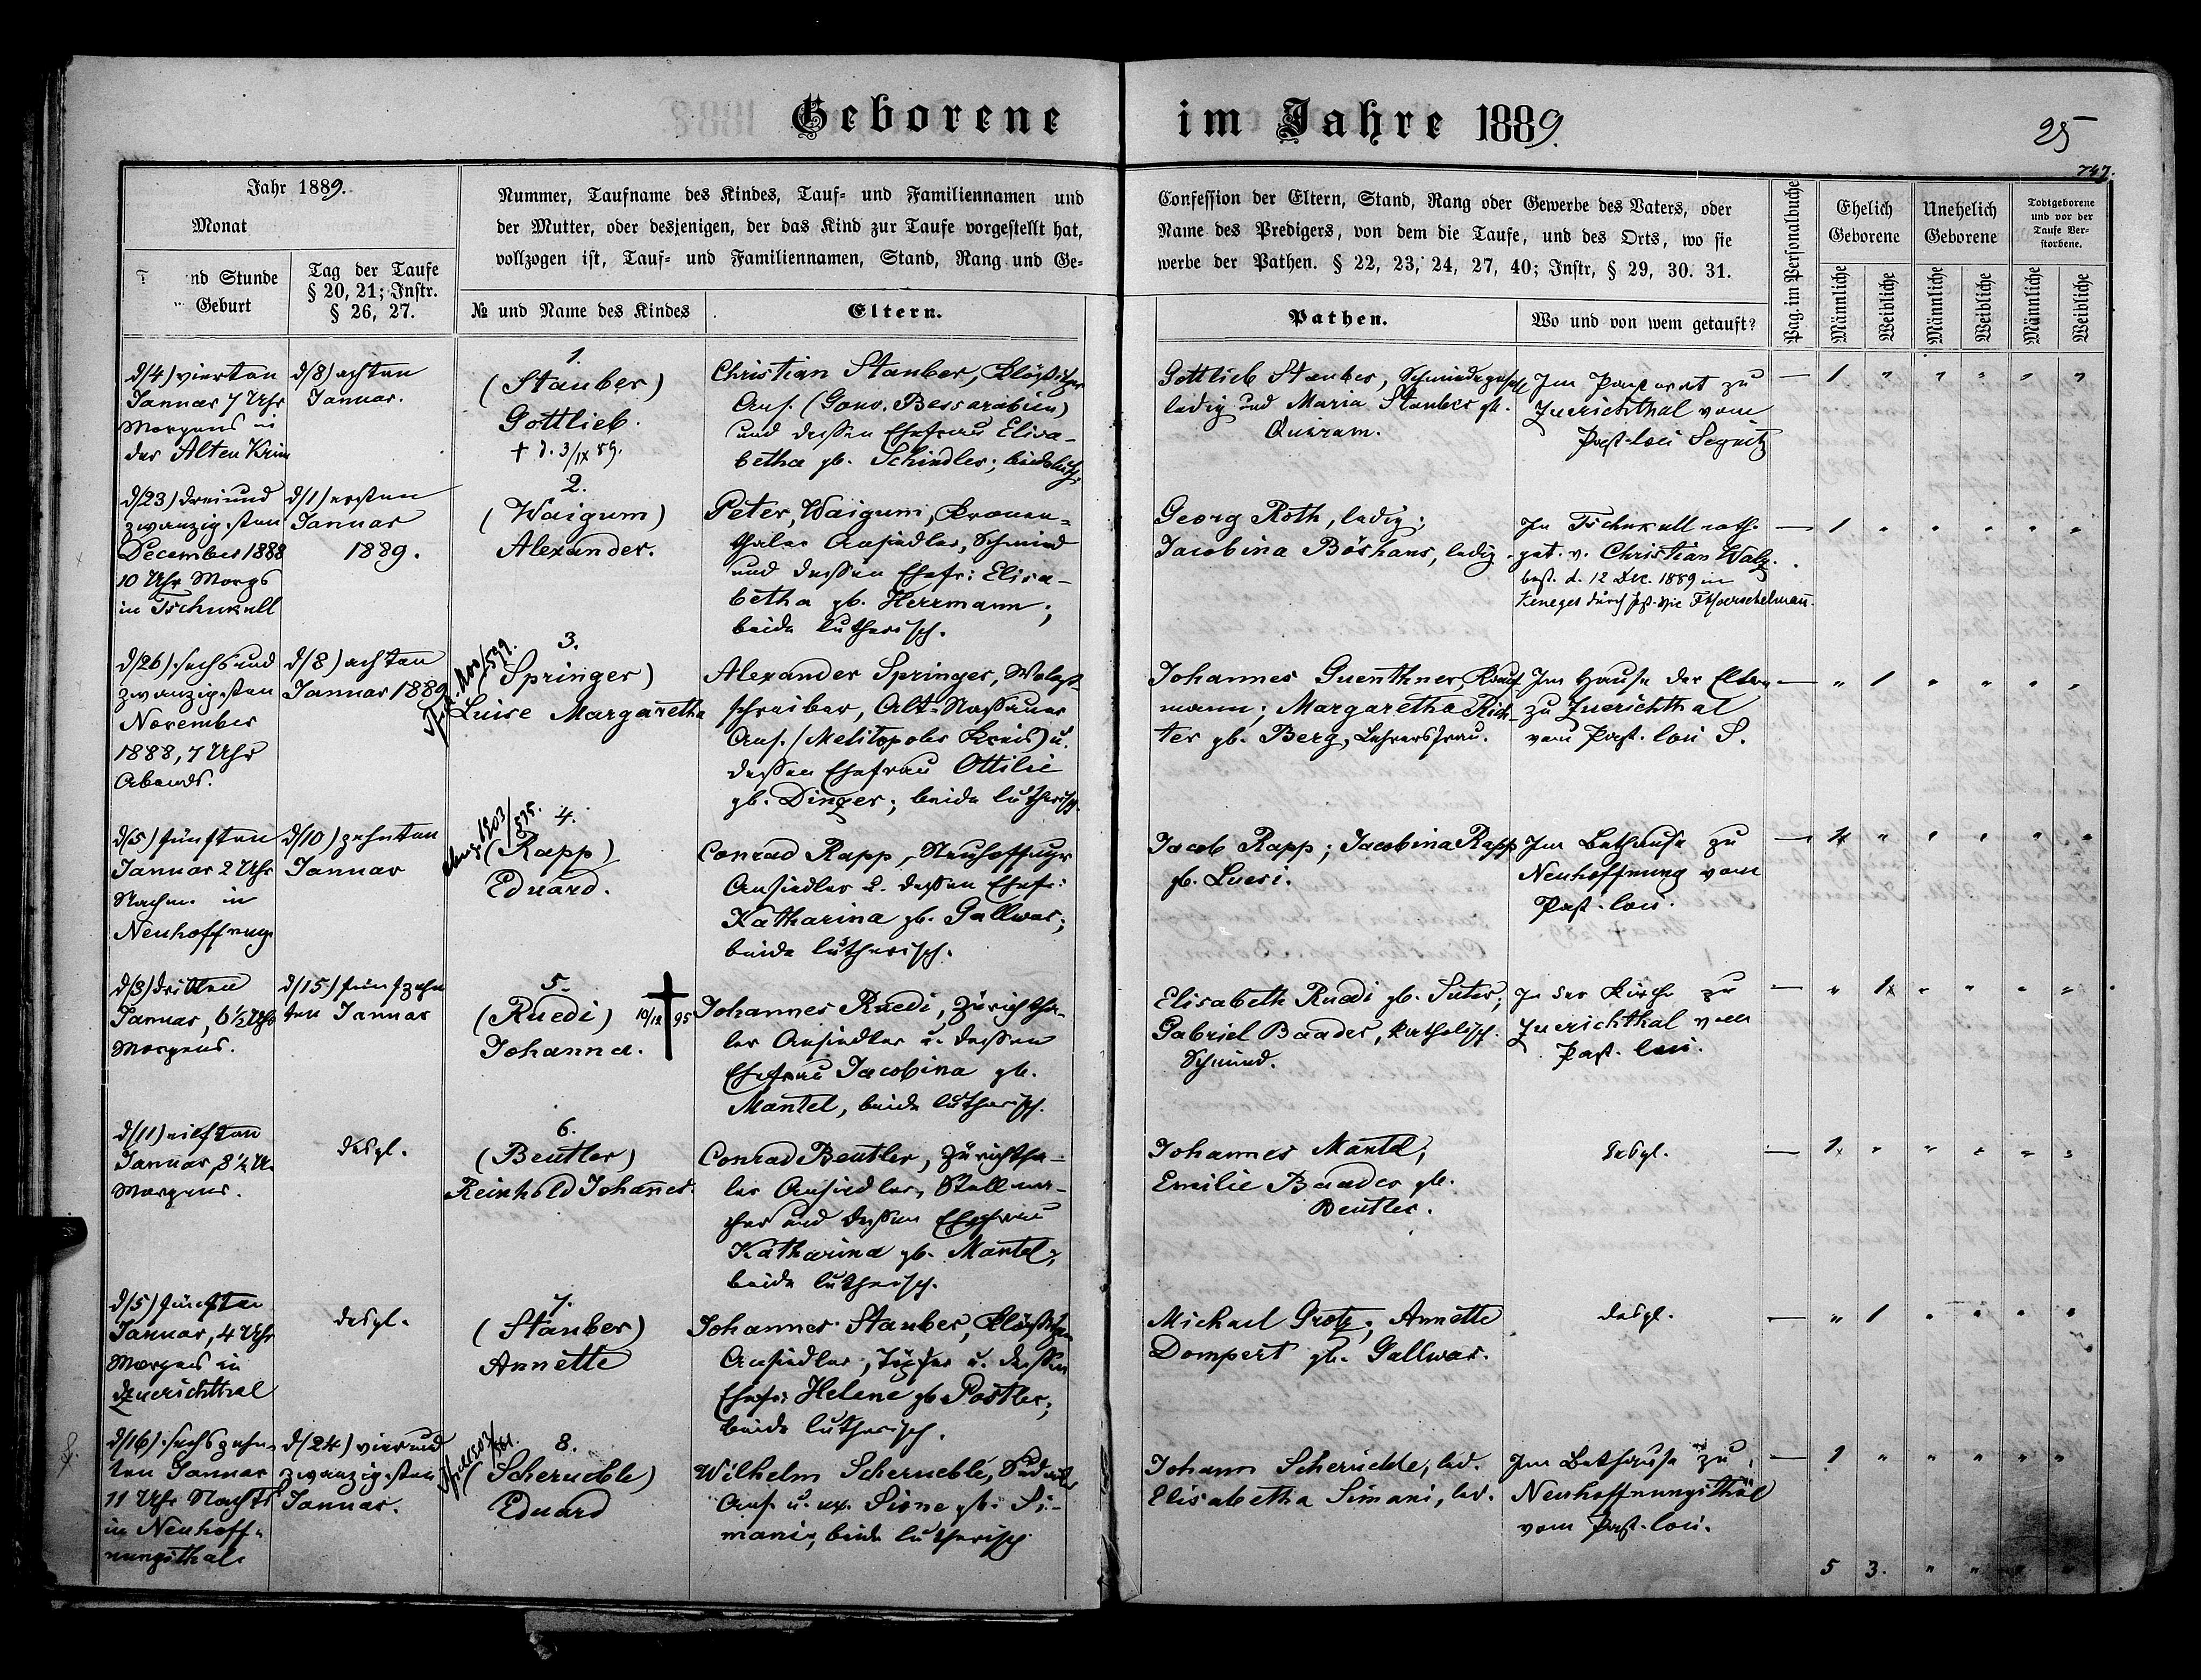 Geborene im Jahre 1889.
25
747.
Jahr 1889.
Monat
nd Stunde
Geburt
Tag der Taufe
§ 20, 21; Instr.
§ 26, 27.
Nummer, Taufname des Kindes, Tauf- und Familiennamen und
der Mutter, oder desjenigen, der das Kind zur Taufe vorgestellt hat,
vollzogen ist, Tauf- und Familiennamen, Stand, Rang und Ge-
№ und Name des Kindes
Eltern.
Confession der Eltern, Stand, Rang oder Gewerbe des Vaters, oder
Name des Predigers, von dem die Taufe, und des Orts, wo sie
werbe der Pathen. § 22, 23, 24, 27, 40; Instr, § 29, 30. 31.
Pathen.
Wo und von wem getauft?
Pag. im Personalbuche
Ehelich
Geborene
Unehelich
Geborene
Todtgeborene
und vor der
Taufe Ver-
storbene.
Männliche
Weibliche
Männliche
Weibliche
Männliche
Weibliche
d/4) vierten
Januar 7 Uhr
Morgens in
der Alten Krim
d/8) achten
Januar.
1.
(Stauber)
Gottlieb.
† d. 3/IX 89.
Christian Stauber,
Ans. (Gouv. Bessarabien)
und dessen Ehefrau Elisa-
betha gb. Schindler; beide luth.
Gottlieb Stauber, Schmiedegesell
ledig und Maria Stauber gb.
Quiram.
Im Pastorat zu
Zuerichthal vom
Past. loci
— 1 " " " " "
d/23) dreiund
zwanzigsten
December 1888
10 Uhr Morgs
in Tschukull
d/1) ersten
Januar
1889.
2.
(Waigum)
Alexander.
Peter Waigum, Kronen-
thaler Ansiedler, Schmied
und dessen Ehefr: Elisa-
betha gb. Herrmann;
beide lutherisch.
Georg Roth, ledig;
Jacobina Böshans, ledig
In Tschukull noth-
get. v. Christian Walz.
best. d. 12 Dec. 1889 in
Keneges durch
— 1 " " " " "
d/26) sechsund
zwanzigsten
November
1888, 7 Uhr
Abends.
d/8) achten
Januar 1889
3.
Springer)
Luise Margaretha
Alexander Springer, Wolost-
schreiber, Alt-Nassauer
Ans. (Melitopoler Kreis) u.
dessen Ehefrau Ottilie
gb. Dinger; beide lutherisch.
Johannes Guenthner, Kauf-
mann; Margaretha Rich-
ter gb. Berg, Lehrersfrau.
Im Hause der Eltern
zu Zuerichthal
vom Past. loci S.
— " 1 " " " "
d/5) fünften
Januar 2 Uhr
Nachm. in
Neuhoffnung
d/10) zehnten
Januar
4.
(Rapp)
Eduard.
Conrad Rapp, Neuhoffngr
Ansiedler u. dessen Ehefr:
Katharina gb. Gallwas;
beide lutherisch.
Jacob Rapp; Jacobina Rapp
gb. Luesi.
Im Bethause zu
Neuhoffnung vom
Past. loci.
— 1 " " " " "
d/3) dritten
Januar, 6½ Uhr
Morgens.
d/15) fünfzehn
ten Januar
5.
(Ruedi)
Johanna.
10/12 † 95
Johannes Ruedi, Zürichtha-
ler Ansiedler u. dessen
Ehefrau Jacobina gb.
Mantel, beide lutherisch.
Elisabeth Ruedi gb. Suter;
Gabriel Baader, katholisch.
Schmied.
In der Kirche zu
Zuerichthal vom
Past. loci.
— " 1 " " " "
d/11) eilften
Januar, 8½ U.
Morgens.
desgl.
6.
(Beutler)
Reinhold Johannes.
Conrad Beutler, Zürichtha-
ler Ansiedler, Stellma-
cher und dessen Ehefrau
Katharina gb. Mantel;
beide lutherisch.
Johannes Mantel;
Emilie Baader gb.
Beutler.
desgl.
— 1 " " " " "
d/5) fünften
Januar, 4 Uhr
Morgens in
Zuerichthal
desgl.
7.
(Stauber)
Annette
Johannes Stauber,
Ansiedler, Töpfer u. dessen
Ehefr: Helene gb. Postler;
beide lutherisch.
Michael Grotz; Annette
Dompert gb. Gallwas.
desgl.
— " 1 " " " "
d/16) sechszehn-
ten Januar
11 Uhr Nachts
in Neuhoff-
nungsthal
d/24) vierund
zwanzigsten
Januar.
8.
(Scherueble)
Eduard
Wilhelm Scherueble,
Ans. u. ux. Sione gb. Si-
mani; beide lutherisch
Johann Scheruebleldig, led.
Elisabetha Simani, led.
Im Bethause zu
Neuhoffnungsthal
vom Past. loci.
— 1 " " " " "
5 3. " " " "